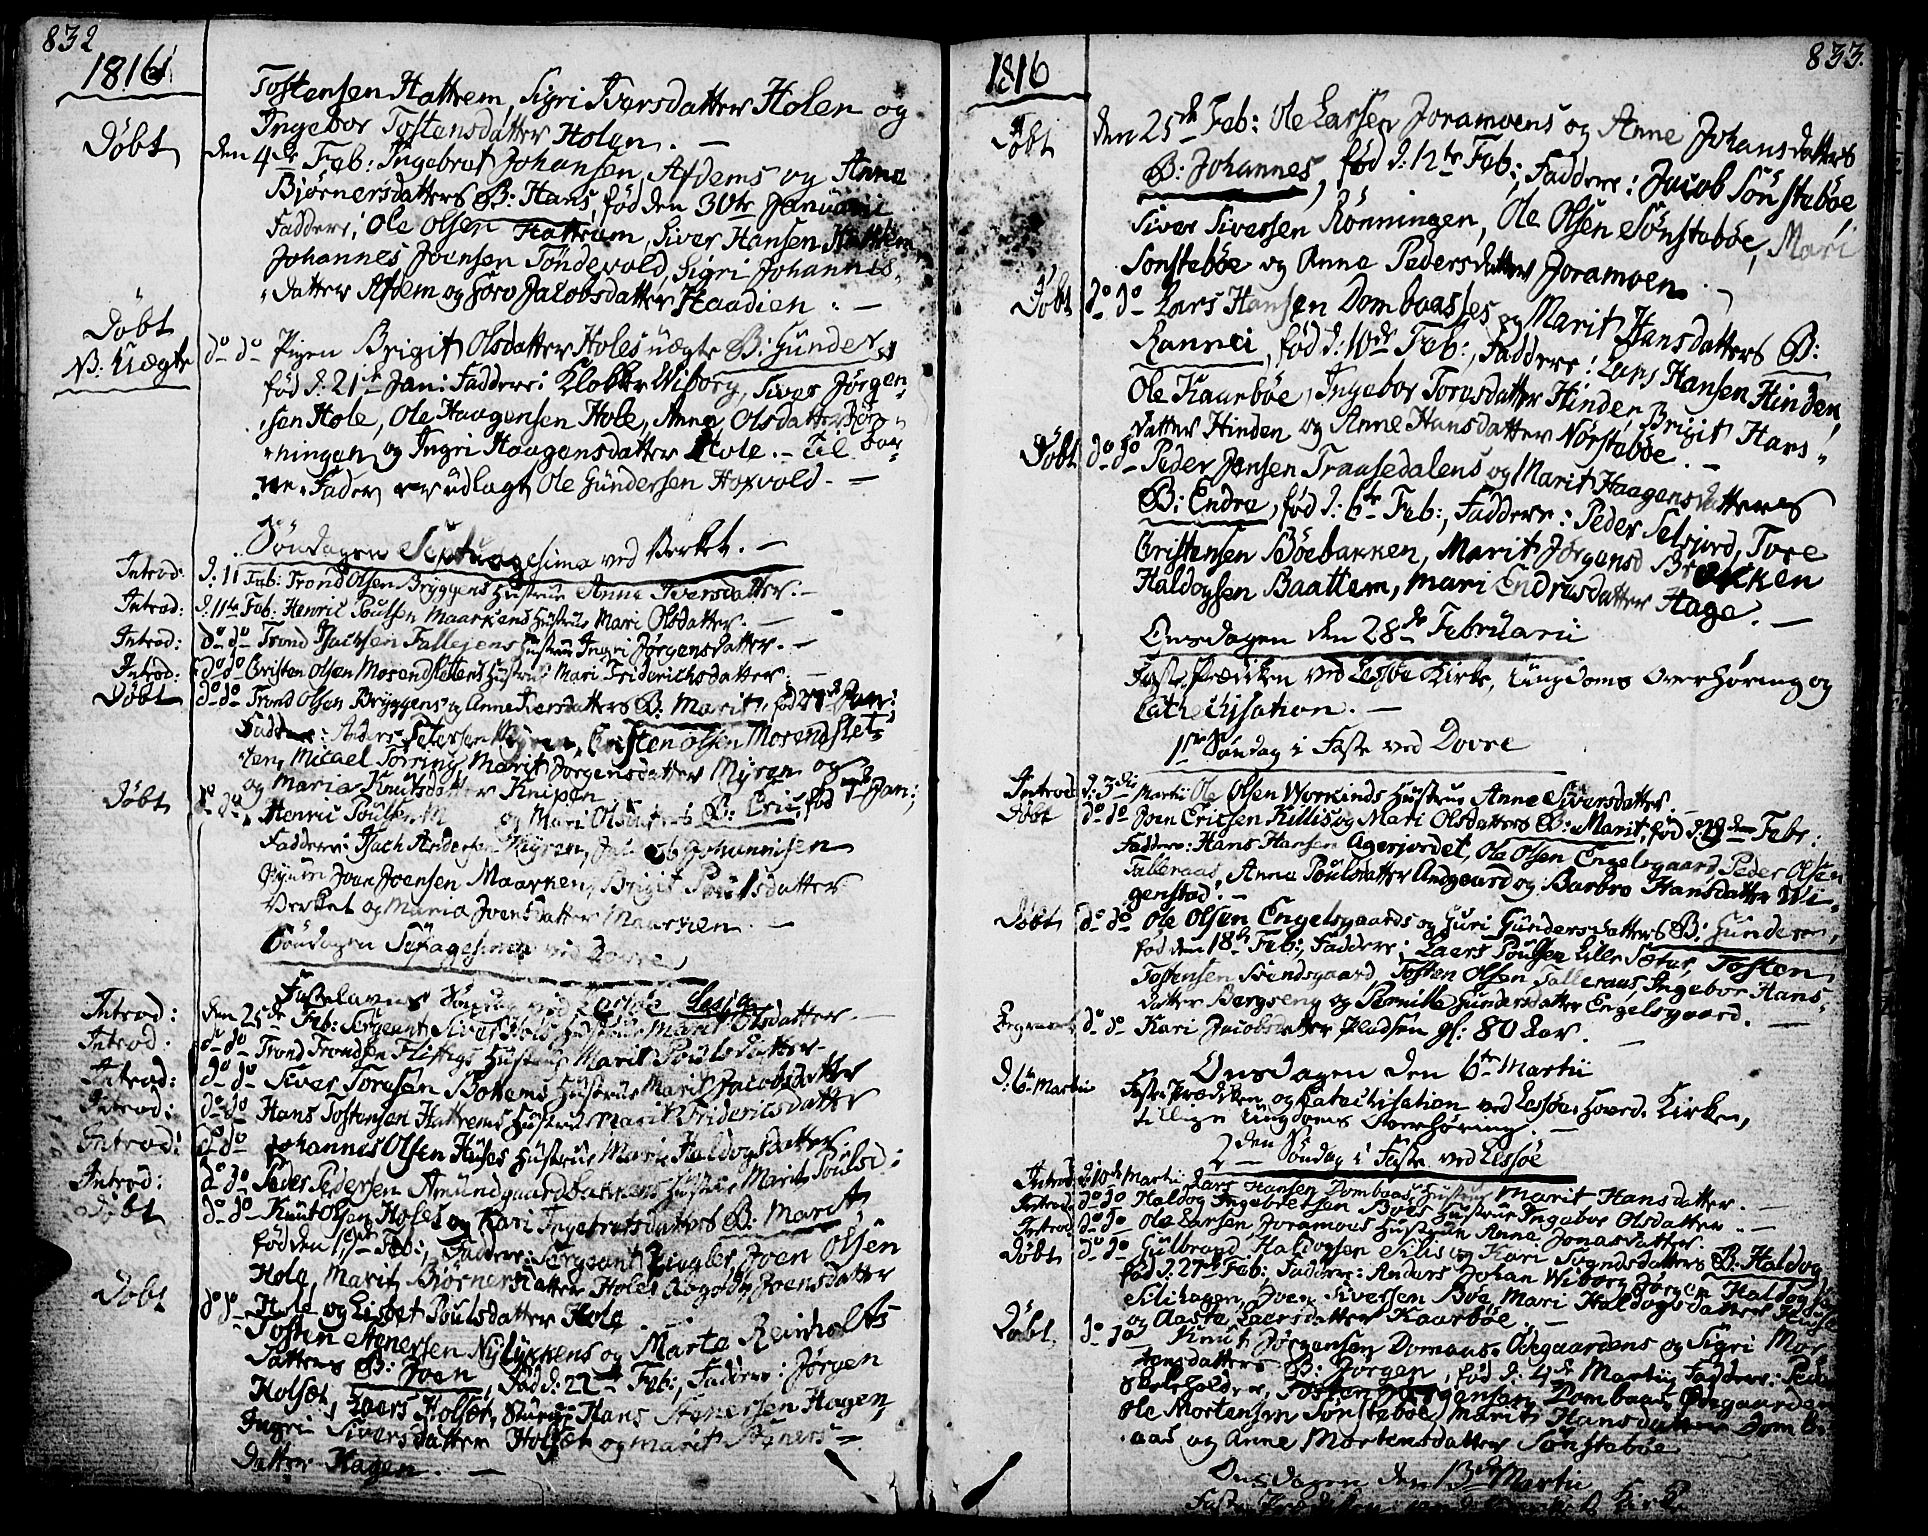 832
1816
Tostensen Hattrem, Sigri Iversdatter Holen og
Ingebor Tostensdatter Holen. —
Döbt den 4de Feb: Ingebret Johansen Afdems og Anne
Bjørnersdatters B: Hans, född den 30te Januarii
Faddere: Ole Olsen Hattrem, Siver Hansen Hattrem
Johannes Joensen Töndevold, Sigri Johannis-
datter Afdem og Goro Jacobsdatter Haadien. —
Döbt
N: Uægte do do Pigen Brigit Olsdatter Holes uægte B: Gunder
föd d: 21de Jan: Faddere: Klokker Wiborg, Siver Jörgen
sen Hole, Ole Haagensen Hole, Anne Olsdatter Rön-
ningen og Ingri Haagensdatter Hole. — Til Bar-
ne-Fader er udlagt Ole Gundersen Hoxvold. —
Söndagen Septuagesima ved Verket. —
Introd: d. 11 Feb: Trond Olsen Bryggens Hustrue Anne Iversdatter. —
Introd: d. 11te Feb: Henric Poulsen Maarkens Hustrue Mari Olsdatter. —
Introd: do do Trond Isachsen Fallejens Hustrue Ingri Jörgensdatter. —
Introd: do do Cristen Olsen Mosendsletens Hustrue Mari Friderichsdatter.
Döbt do do Trond Olsen Bryggens og Anne Iversdatters B: Marit, föd Jan:
Faddere: Anders Petersen Myren, Cristen Olsen Mosendslet-
ten, Micael Torring, Marit Jörgensdatter Myren og
og Maria Knutsdatter Knipen
Döbt do do Henric Poulsen M og Mari Olsdatters B: Eric, föd Jan:
Faddere: Isach Andersen Myren, Jacob Johannisen
Joen Joensen Maarken, Brigit Poulsdatter
Verket og Maria Joensdatter Maarken. —
Söndagen Sexagesima ved Dovre
Fastelavns Söndag ved Lesje
Introd: den 25de Feb: Sergeant Siver Hols Hustrue Marit Olsdatter. —
Introd: do do Trond Trondsen Flittigs Hustrue Marit Poulsdatter
Introd: do do Siver Toresen Bottems Hustrue Marit Jacobsdatter
Introd: do do Hans Tostensen Hattrems Hustrue Marit Fridericsdatter
Introd: do do Johannes Olsen Huses Hustrue Mari Haldogsdatter
Introd: do do Peder Pedersen Amundgaardbakkens Hustrue Marit Poulsd:
Döbt do do Knut Olsen Holes og Kari Ingebretsdatters B: Marit,
född den 1ste Feb:, Faddere: Sergeant Ziegler, Joen Olsen
Hole, Marit Björnersdatter Holes Joensdatter
Hole og Lisbet Poulsdatter Hole
Döbt do do Tosten Stenersen Nylykkens og Marte Reinholts
datters B: Joen, Föd d: 22de Feb:, Faddere: Jörgen
Holset, Laers Holset, Hans Stenersen Hagen,
Ingri Siversdatter Holset og Marit Steners-
datter Hagen. —
833
1816
Döbt den 25de Feb: Ole Larsen Joramoens og Anne Johansdatters
B: Johannes, föd d: 12te Feb:, Faddere: Jacob Sönsteböe,
Siver Siversen Rönningen, Ole Olsen Sönsteböe, Mari
Sönsteböe og Anne Pedersdatter Joramoen. —
Döbt do do Lars Hansen Dombaases og Marit Hansdatters B:
Rannei, föd d: 10de Feb:, Faddere: Lars Hansen Hinden,
Ole Kaarböe, Ingebor Toresdatter Hinden, Brigit Hans-
datter Hinden og Anne Hansdatter Nörsteböe. —
Döbt do do Peder Jensen Traasedalens og Marit Haagensdatters
B: Endre, föd d: 6te Feb:, Faddere: Peder Selsjord, Tore
Cristensen Böebakken, Marit Jörgensd Brækken
Haldogsen Baattem, Mari Endresdatter Hage. —
Onsdagen den 28de Februarii
Faste-Prædiken ved Lessöe Kirke, Ungdoms Overhöring og
Catechisation. —
1ste Söndag i Faste ved Dovre
Introd d. 3die Martii Ole Olsen Workinds Hustrue Anne Siversdatter. —
Döbt do do Joen Ericsen Killis og Mari Olsdatters B: Marit, föd d: Febr:
Faddere: Hans Hansen Agerjordet, Ole Olsen Engelsgaard, Peder Olsen
Talleraas, Anne Poulsdatter Andgaard og Barbro Hansdatter Wi-
genstad. —
Döbt do do Ole Olsen Engelsgaards og Guri Gundersdatters B: Gunder,
föd den 18de Feb:, Faddere: Laers Poulsen Lille Sæter, Tosten
Tostensen Brendsgaard, Tosten Olsen Talleraas, Ingebor Hans-
datter Bergseng og Pernille Gundersdatter Engelsgaard. —
Begravet do do Kari Jacobsdatter Pladsen gl: 80 Aar. —
Onsdagen den 6te Martii
d: 6te Martii Faste-Prædiken og Catechisation ved Lessöe-Hoved-Kirken,
tillige Ungdoms Overhöring. —
2den Söndag i Faste ved Lessöe
Introd: d: 10de Martii Lars Hansen Dombaas Hustrue Marit Hansdatter. —
Introd: do do Haldog Ingebretsen Böes Hustrue Ingebor Olsdatter. —
Introd: do do Ole Larsen Joramoes Hustrue Anne Jonasdatter.
Döbt do do Gulbrand Haldogsen Silis og Kari Sögndsdatters B: Haldog
föd d: 27de Feb: Faddere: Anders Johan Wiborg, Jörgen Haldogsen
Silihagen, Joen Siversen Böe, Mari Haldogsdatter
og Aaste Laersdatter Kaarböe. —
Döbt do do Knut Jörgensen Domaas-Ödegaardens og Sigri Mor-
tensdatters B: Jörgen, föd d: 4de Martii, Faddere: Peder
Skoleholder, Tosten Jörgensen Dombaas Ödegaarden
Ole Mortensen Sönsteböe, Marit Hansdatter Domb-
aas og Anne Mortensdatter Sönsteböe
Onsdagen den 13de Martii
Faste Kirke